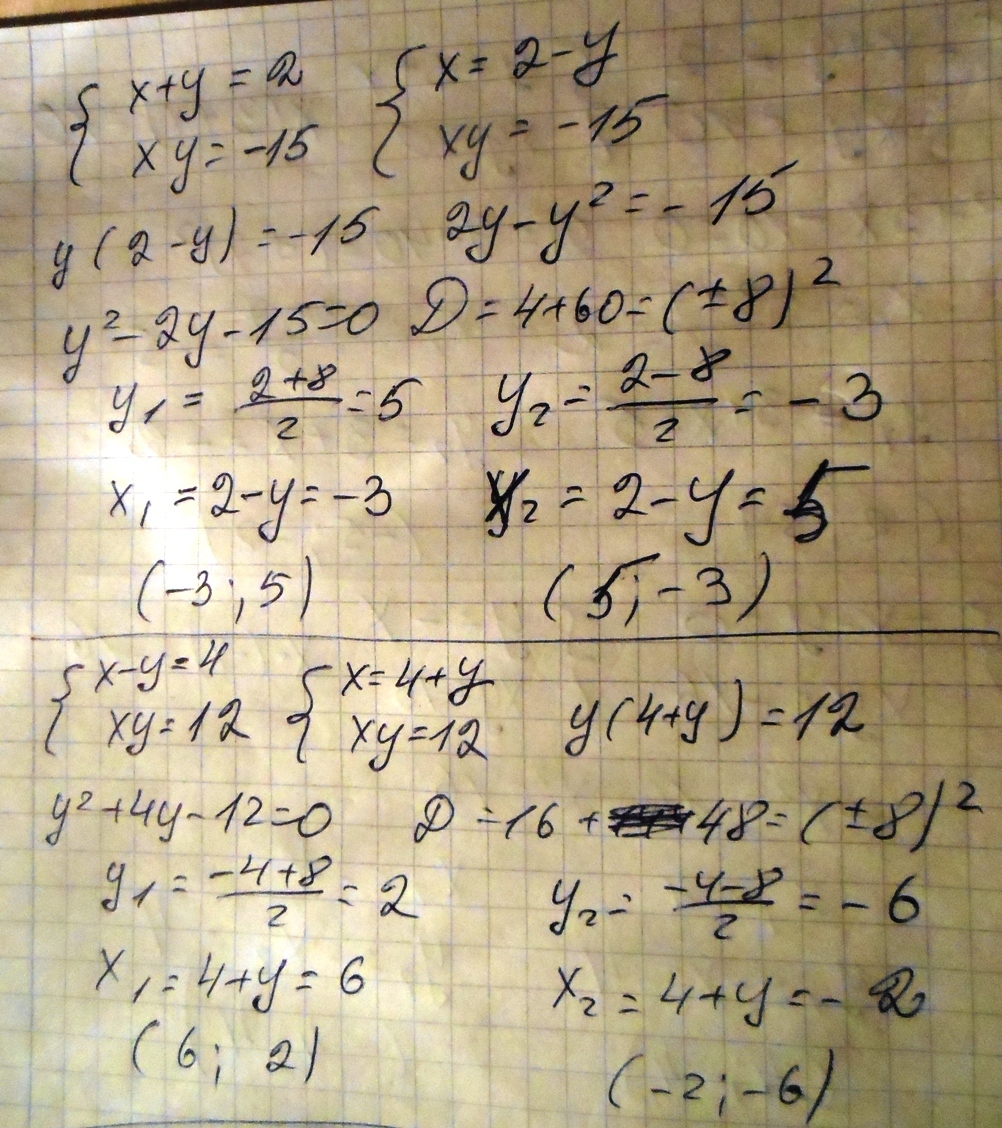 { x+y = 2 { x = 2-y
{ xy = -15 { xy = -15
y(2-y) = -15 2y-y² = -15
y²-2y-15=0 D = 4+60 = (±8)²
y₁ = (2+8)/2 = 5 y₂ = (2-8)/2 = -3
x₁ = 2-y = -3 x₂ = 2-y = 5
(-3; 5) (5; -3)
{ x-y=4 { x=4+y
{ xy=12 { xy=12 y(4+y)=12
y²+4y-12=0 D = 16+48 = (±8)²
y₁ = (-4+8)/2 = 2 y₂ = (-4-8)/2 = -6
x₁ = 4+y = 6 x₂ = 4+y = -2
(6; 2) (-2; -6)